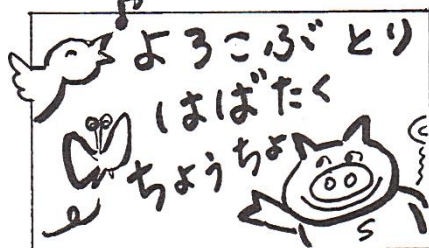 よろこぶとり
はばたく
ちょうちょ